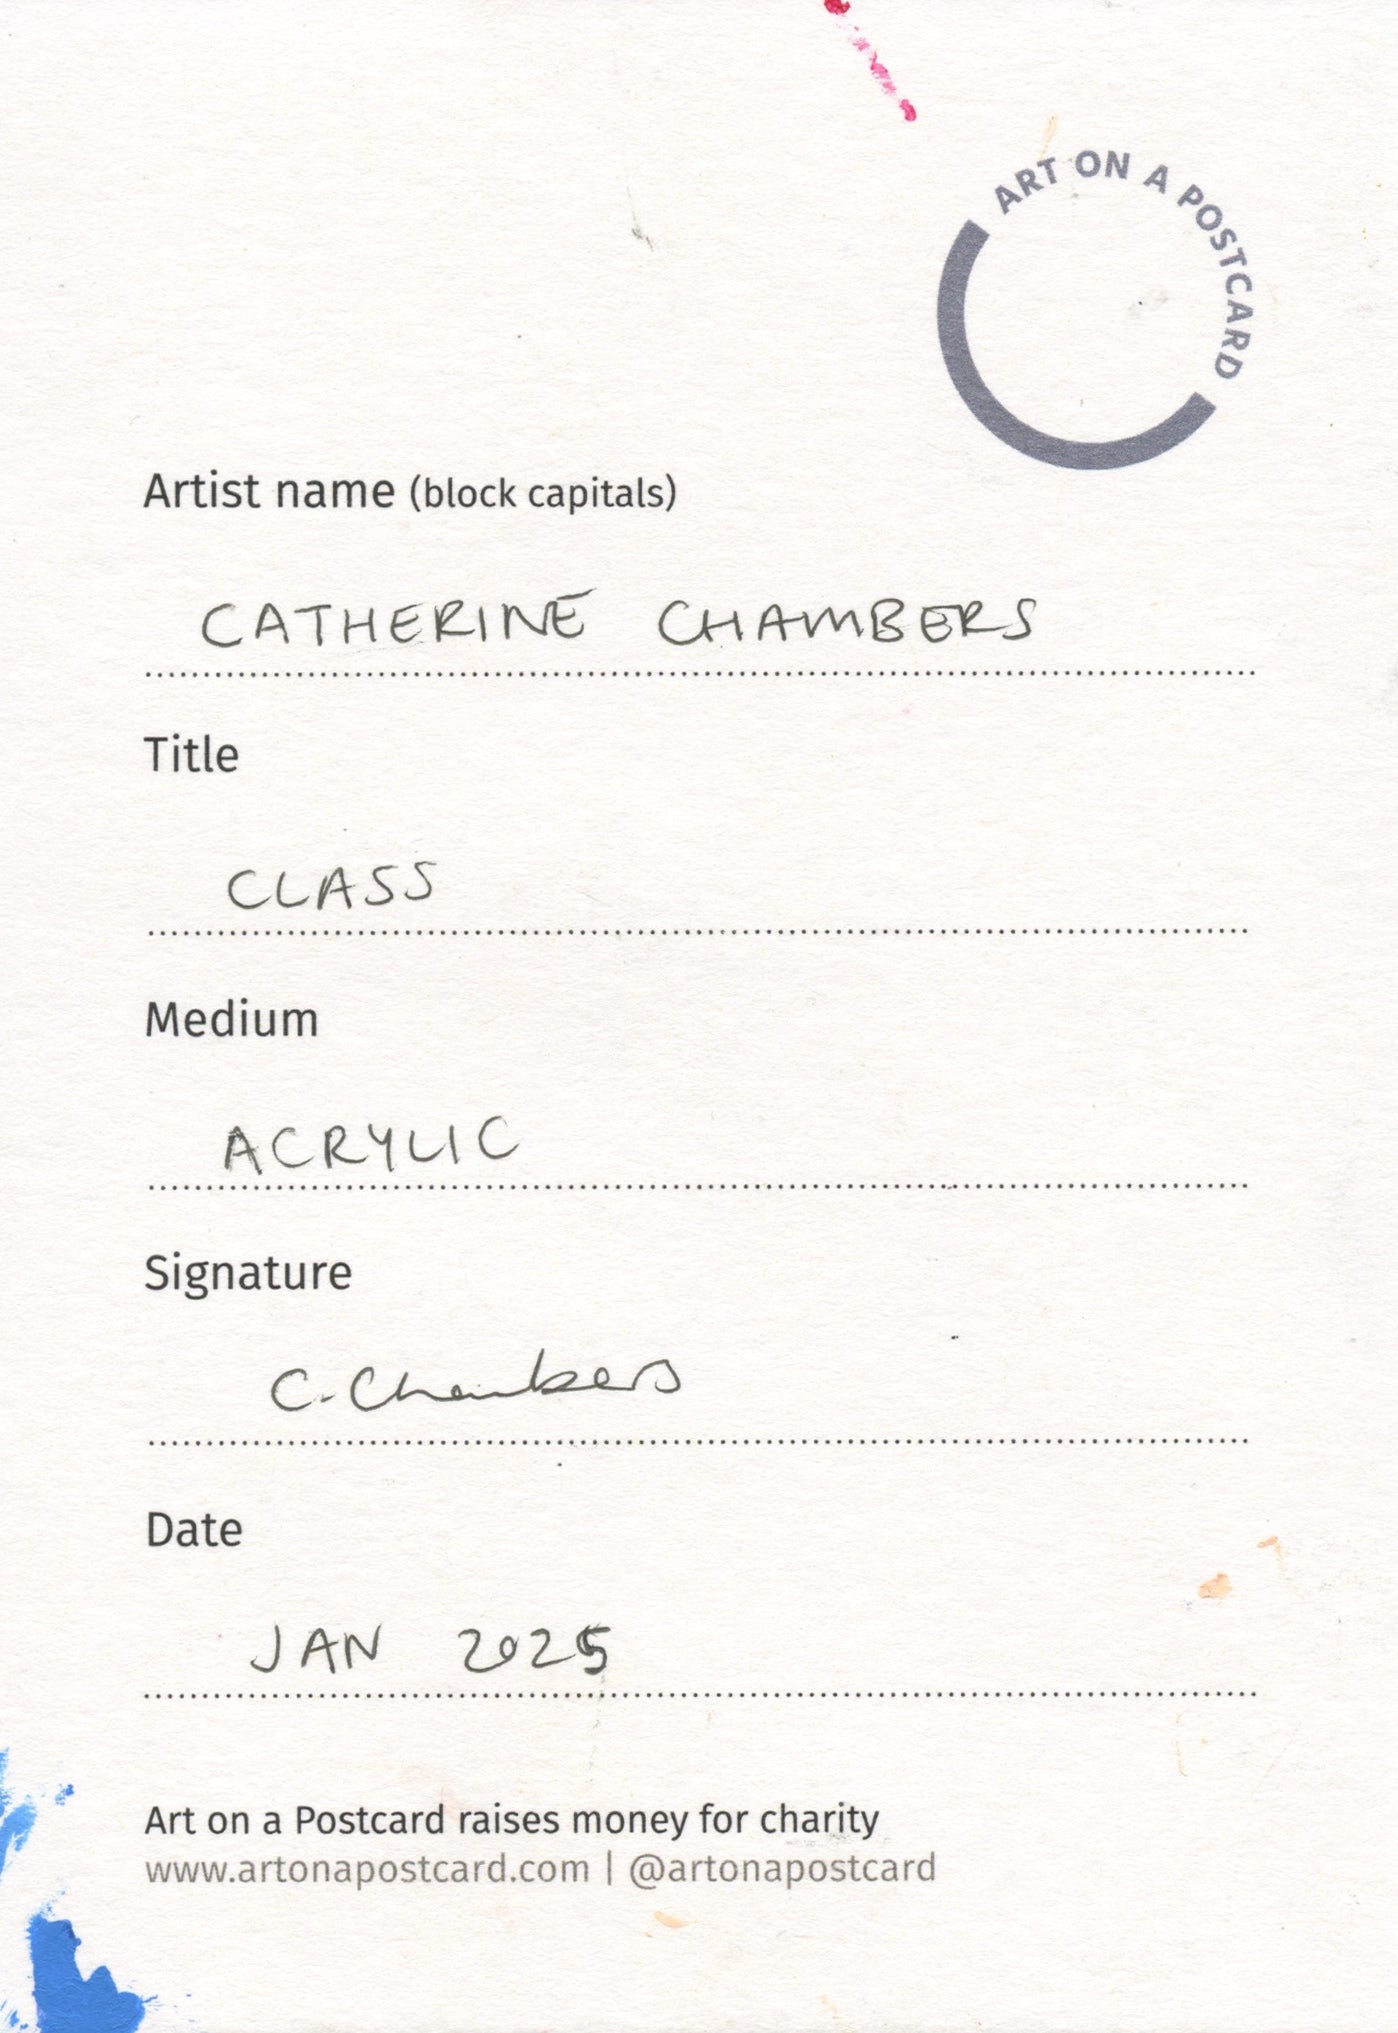 ART ON A POSTCARD
Artist name (block capitals)
CATHERINE CHAMBERS
Title
CLASS
Medium
ACRYLIC
Signature
C. Chambers
Date
JAN 2025
Art on a Postcard raises money for charity
www.artonapostcard.com | @artonapostcard